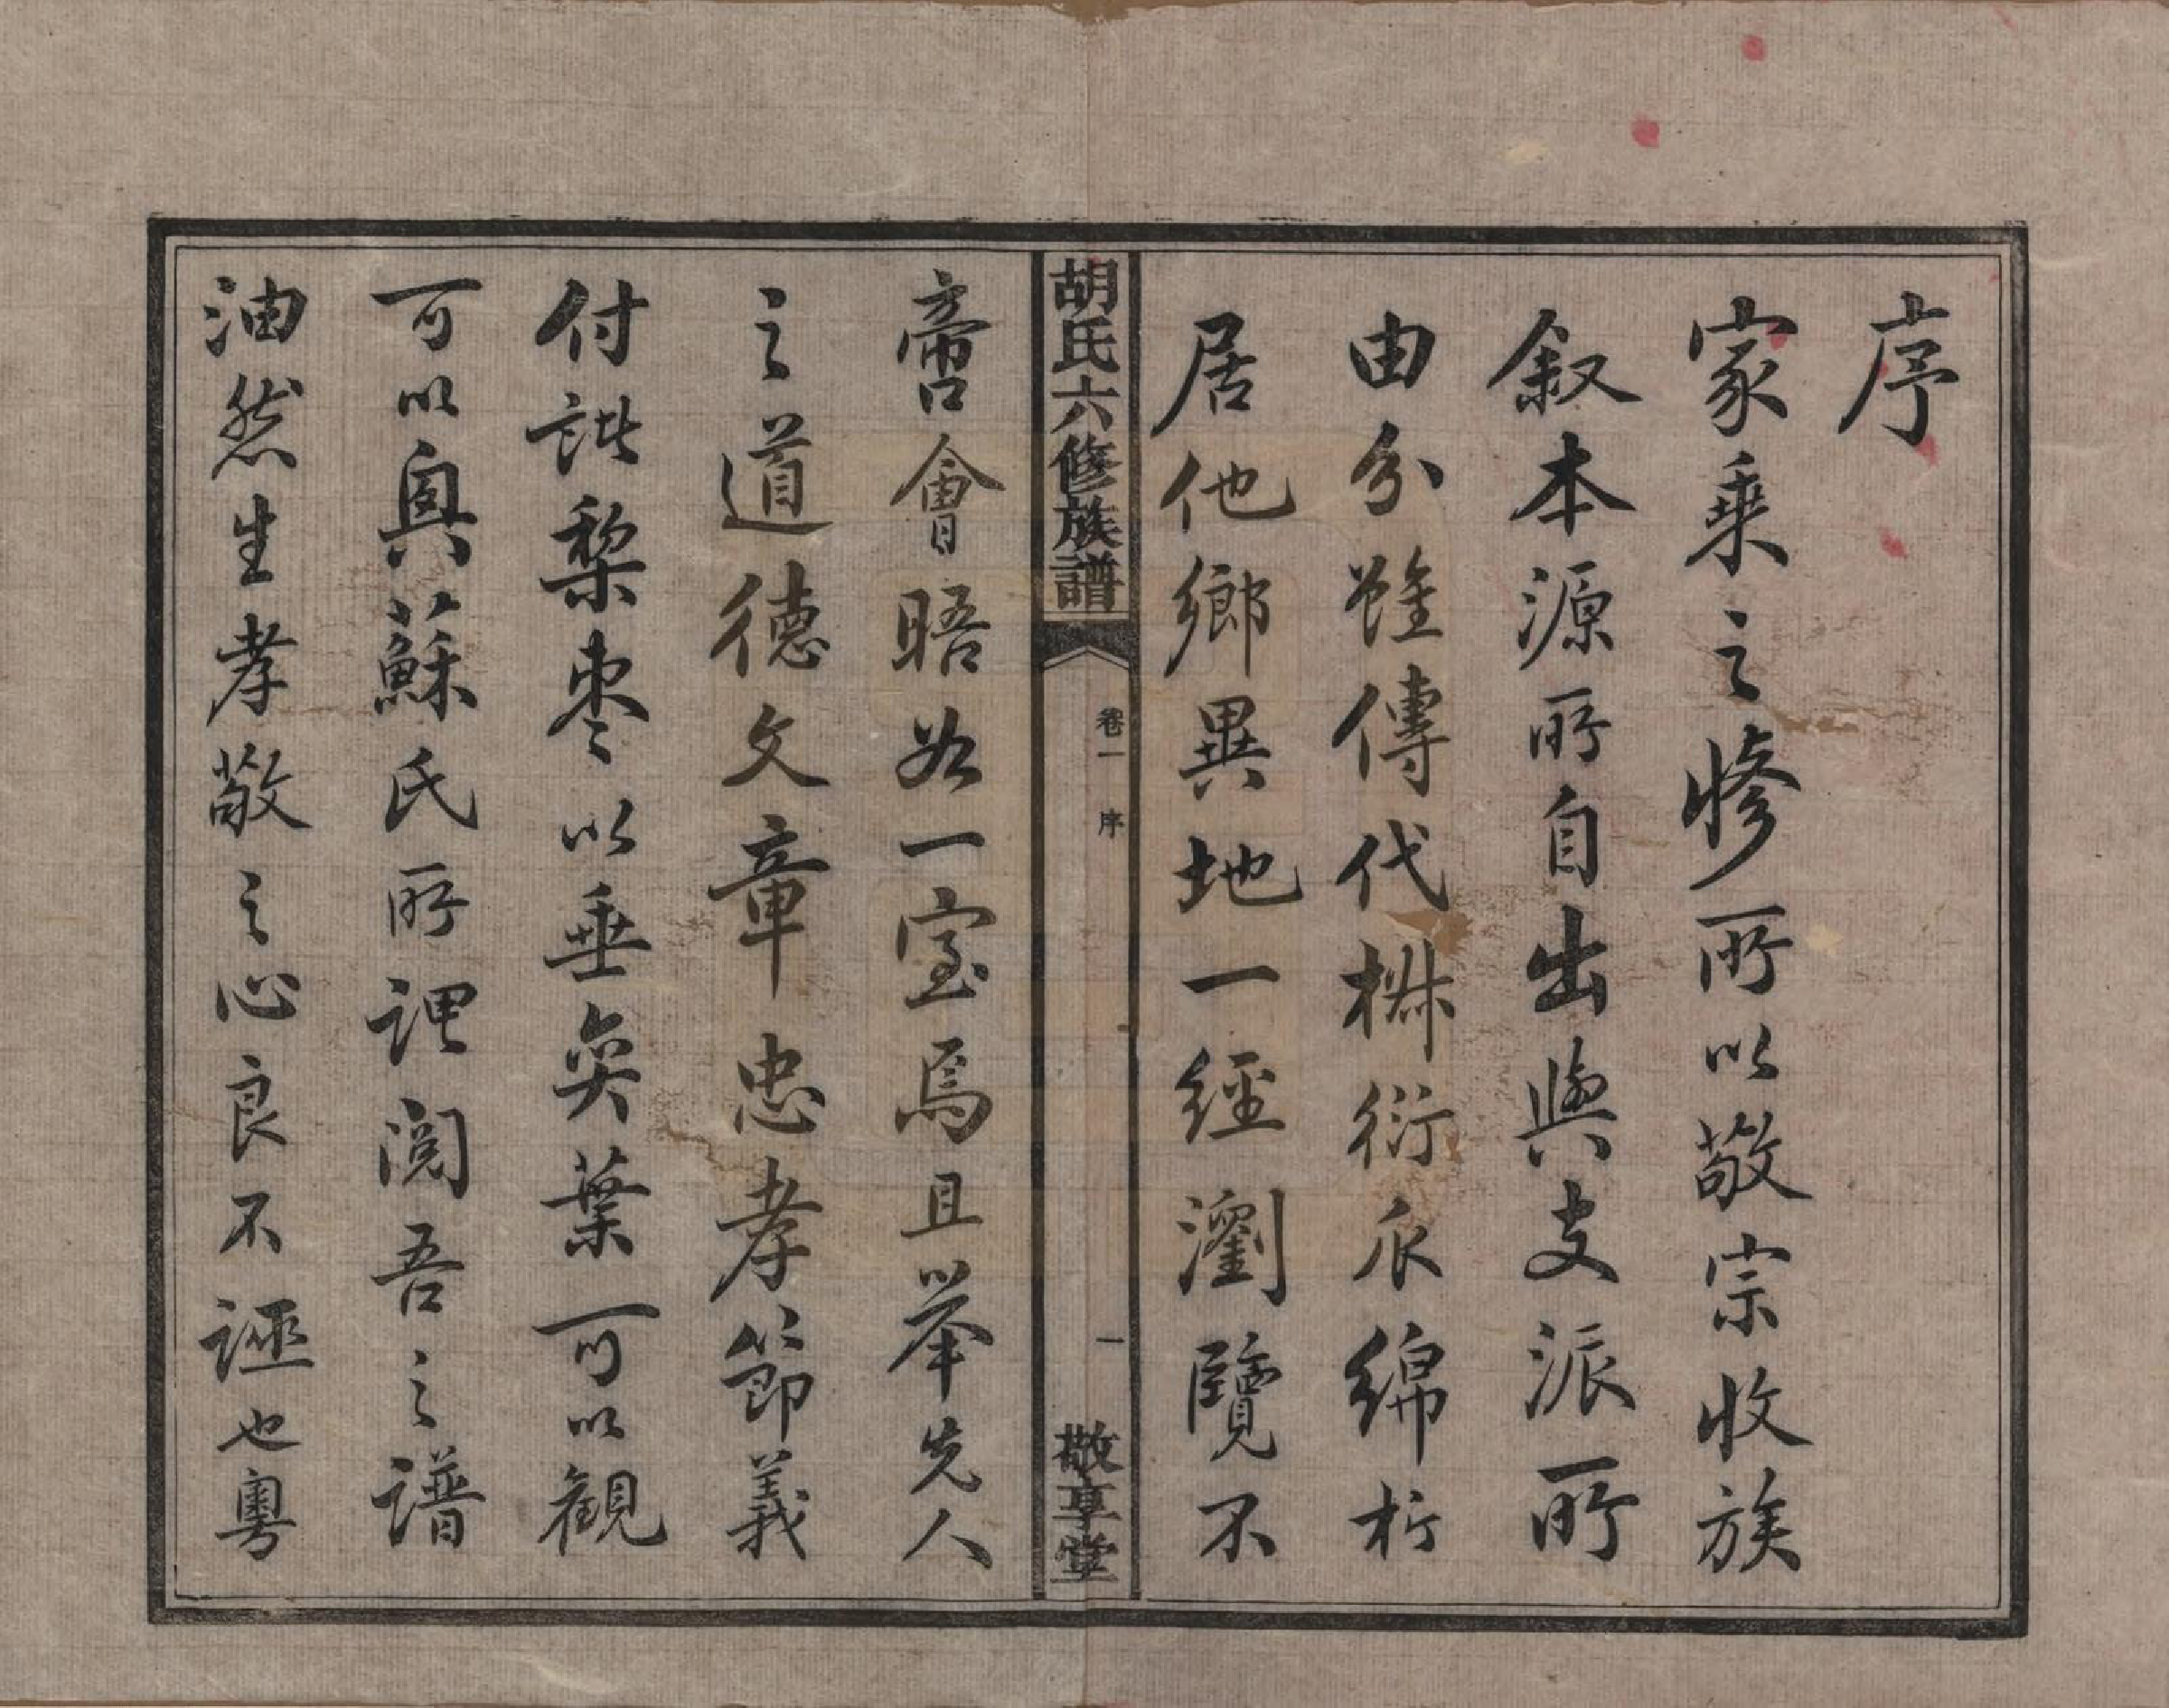 序
家乘之修所以敬宗收族
叙本源所自出與支派所
由分雖傳代椒衍瓜綿析
居他鄉異地一經瀏覽不
胡氏六修族譜
卷一 序
一
敬享堂
啻會晤於一室焉且舉先人
之道德文章忠孝節義
付諸棃枣以垂奕葉可以觀
可以興蘇氏所謂閱吾之譜
油然生孝敬之心良不誣也粵